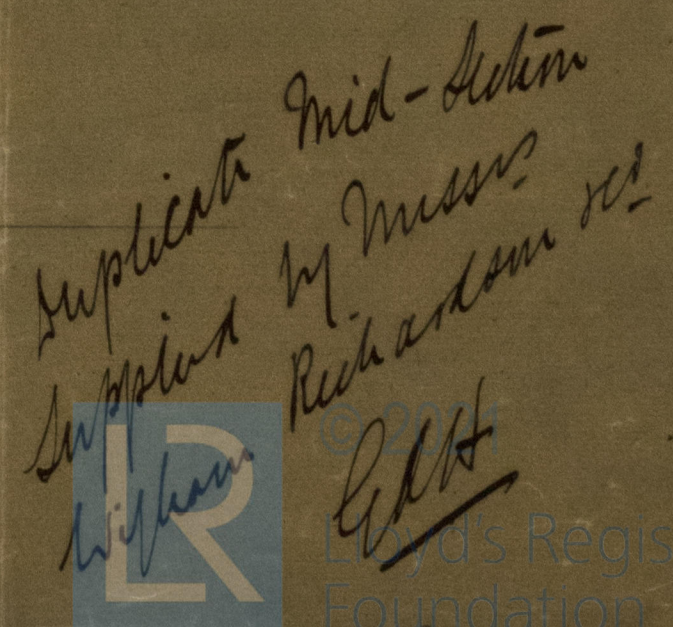 Duplicate Mid-Section
Supplied by Messrs
Wigham Richardson &Co.
GdH
LR
© 2021
Lloyd's Regis
Foundation